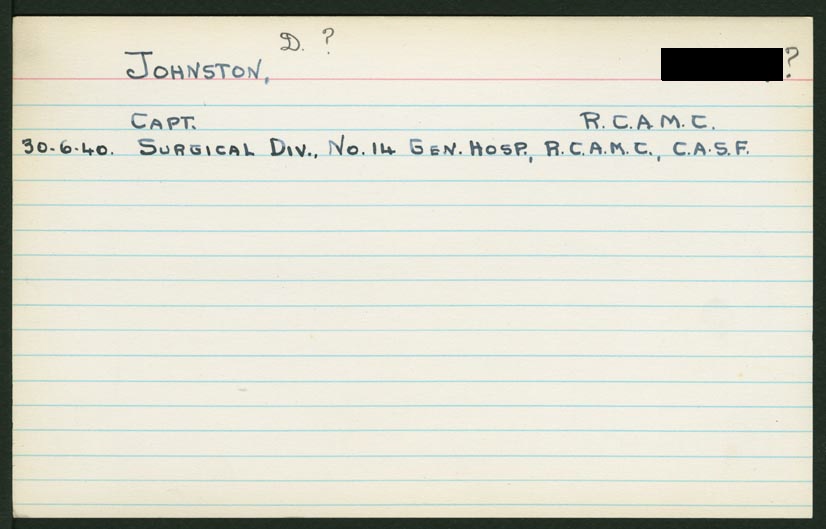 D. ?
JOHNSTON, ?
CAPT. R.C.A.M.C.
30-6-40. SURGICAL DIV., NO. 14 GEN. HOSP., R.C.A.M.C., C.A.S.F.